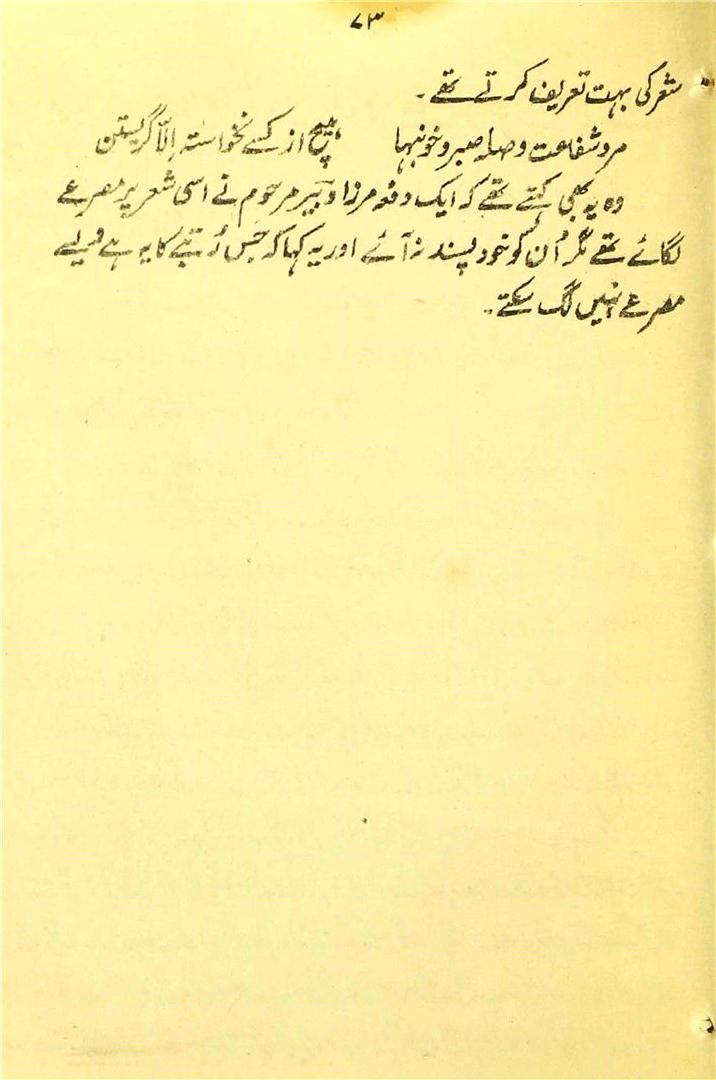 ۷۳
شعر کی بہت تعریف کرتے تھے۔
مزد شفاعت و صلہ صبر و خونبہا ہیچ از کسے نخواستہ اِلّا گریستن
وہ یہ بھی کہتے تھے کہ ایک دفعہ مرزا دبیر مرحوم نے اسی شعر پر مصرعے
لگائے تھے مگر اُن کو خود پسند نہ آئے اور یہ کہا کہ جس رُتبے کا یہ ہے ویسے
مصرعے نہیں لگ سکتے۔